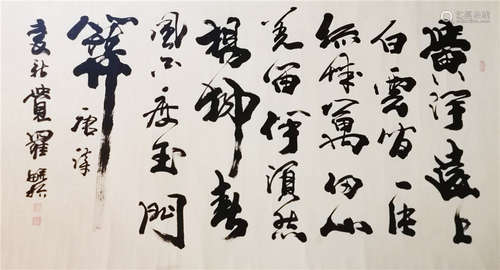 黃河遠上
白雲間一片
孤城萬仞山
羌笛何須怨
楊柳春
風不度玉門
關
唐詩
愛新覺羅